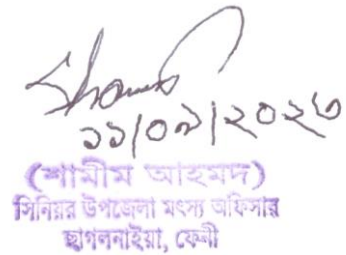 ১১/০৯/২০২৩
(শামীম আহমদ)
সিনিয়র উপজেলা মৎস্য অফিসার
ছাগলনাইয়া, ফেনী